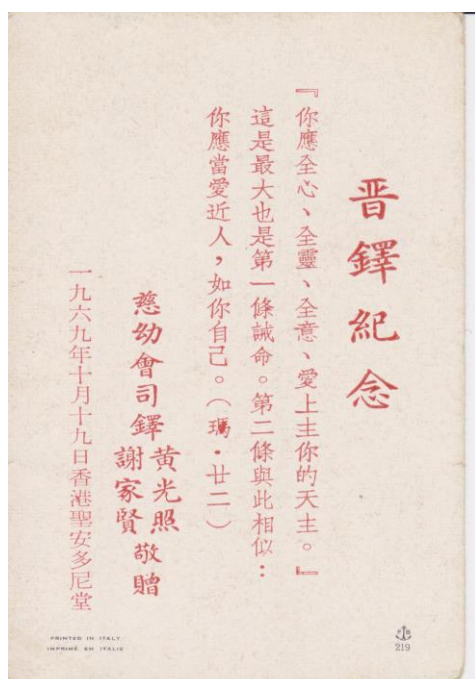 晋鐸紀念
『你應全心、全靈、全意、愛上主你的天主。』
這是最大也是第一條誡命。第二條與此相似：
你應當愛近人，如你自己。（瑪•廿二）
慈幼會司鐸黄光照
謝家賢
敬贈
一九六九年十月十九日香港聖安多尼堂
PRINTED IN ITALY
IMPRIMÉ EN ITALIE
219